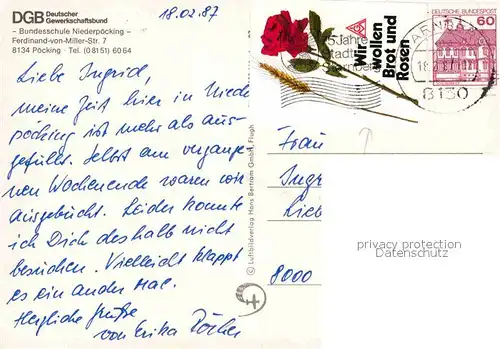 DGB Deutscher
Gewerkschaftsbund
– Bundesschule Niederpöcking –
Ferdinand-von-Miller-Str. 7
8134 Pöcking, Tel. (08151) 6064
18.02.87
Liebe Ingrid,
meine Zeit hier in Nieder
pöcking ist mehr als aus-
gefüllt. Selbst am vergange-
nen Wochenende waren wir
ausgebucht. Leider konnte
ich Dich deshalb nicht
besuchen. Vielleicht klappt
es ein ander Mal.
Herzliche Grüße
von Erika
© Luftbildverlag Hans Bertram GmbH,
Wir
wollen
Brot und
Rosen
Jahre
Stadt
DEUTSCHE BUNDESPOST
60
8130
Frau
Ingr
Lieb
8000
privacy protection
Datenschutz